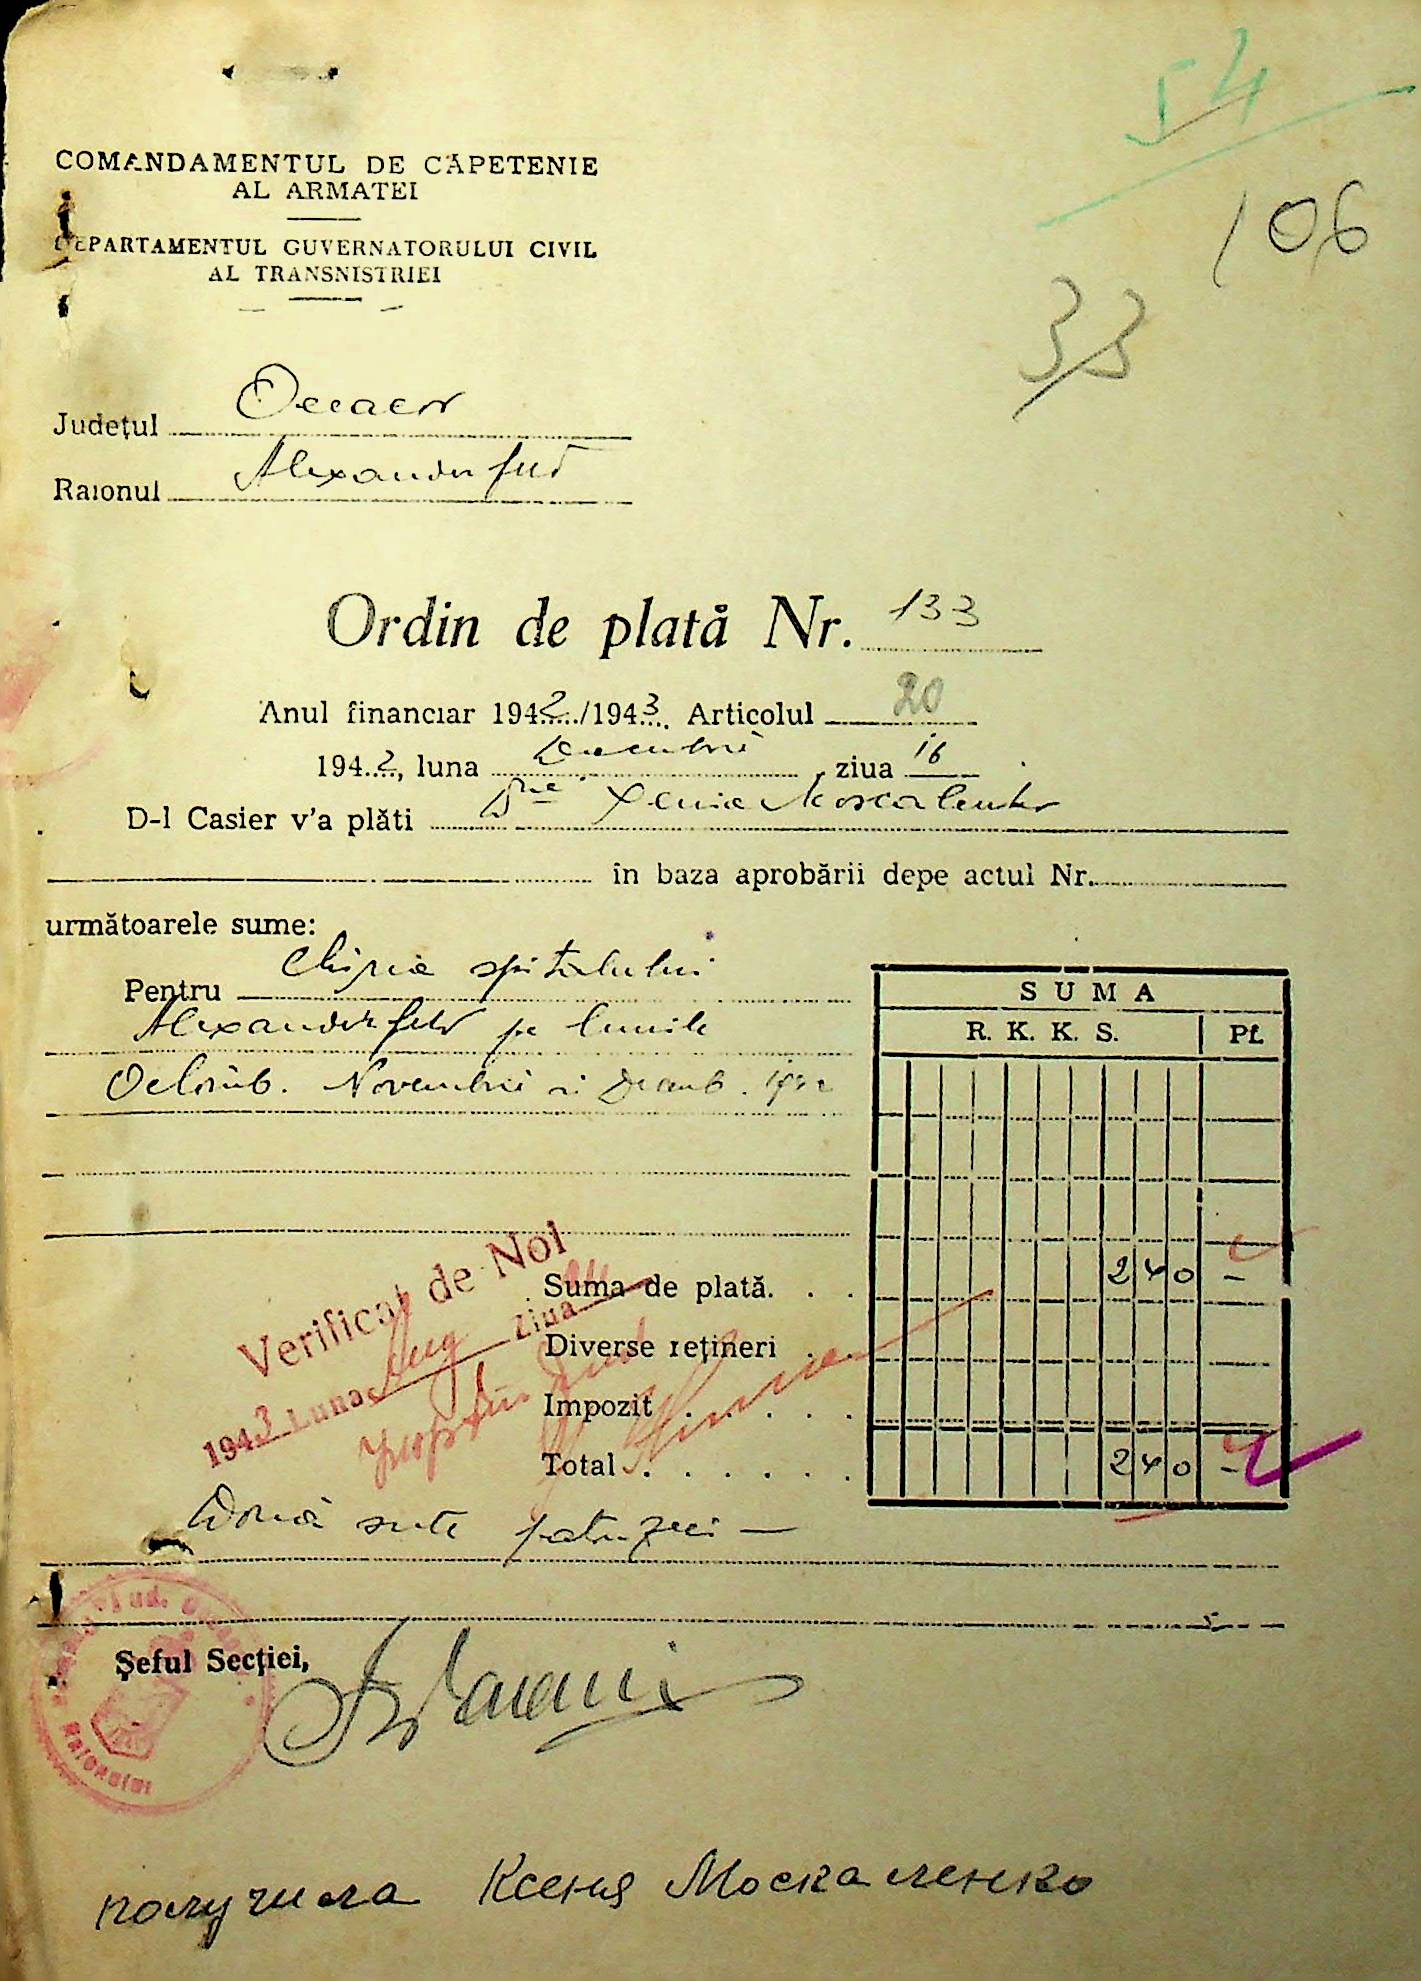 54
106
33
COMANDAMENTUL DE CĂPETENIE
AL ARMATEI
DEPARTAMENTUL GUVERNATORULUI CIVIL
AL TRANSNISTRIEI
Județul Oceacov
Raionul Alexanderfeld
Ordin de plată Nr. 133
Anul financiar 1942/1943 Articolul 20
1942, luna Decembrie, ziua 16
D-l Casier v'a plăti Dnei Xenia Moscalenko
în baza aprobării depe actul Nr.
următoarele sume:
Pentru Chiria spitalului
Alexanderfeld pe lunile
Octomb. Novembrie si Decemb. 1942
SUMA
R. K. K. S. Pf.
Suma de plată. . . 240 –
Diverse rețineri . .
Impozit . . . . . .
Total . . . . . . . 240 –
Verificat de Noi
1943 Luna Aug Ziua
Două sute patruzeci —
Șeful Secției,
Raionului
получила Ксения Москаленко